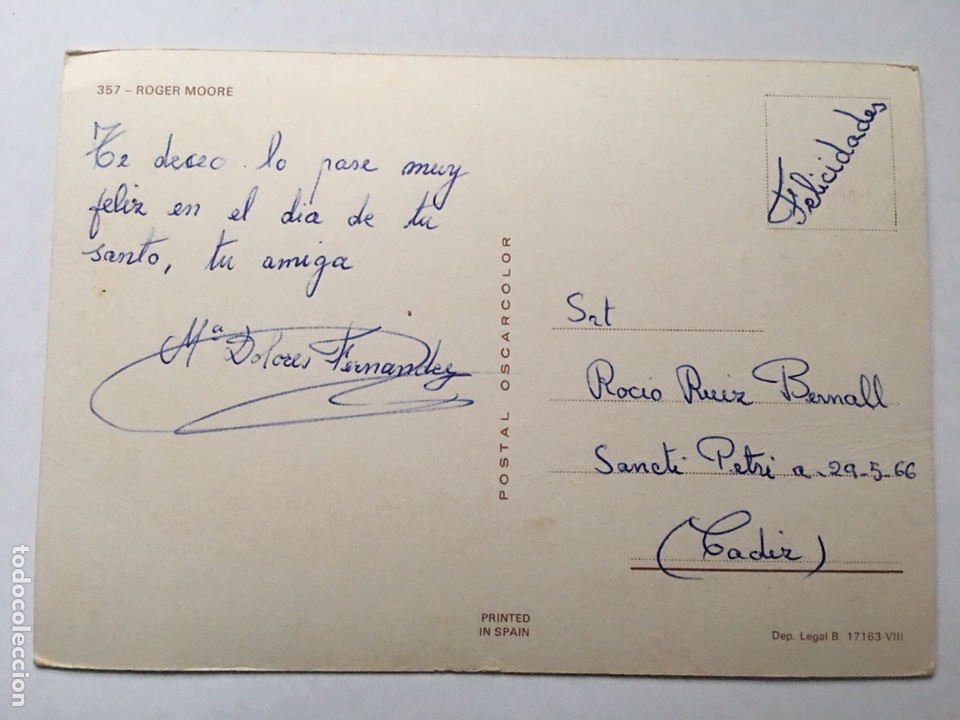 357 – ROGER MOORE
Te deseo lo pase muy
feliz en el dia de tu
santo, tu amiga
Mª Dolores Fernandez
POSTAL OSCARCOLOR
Felicidades
Srt
Rocio Ruiz Bernall
Sancti Petri a 29-5-66
(Cadiz)
PRINTED
IN SPAIN
Dep. Legal B. 17163-VIII
todocoleccion